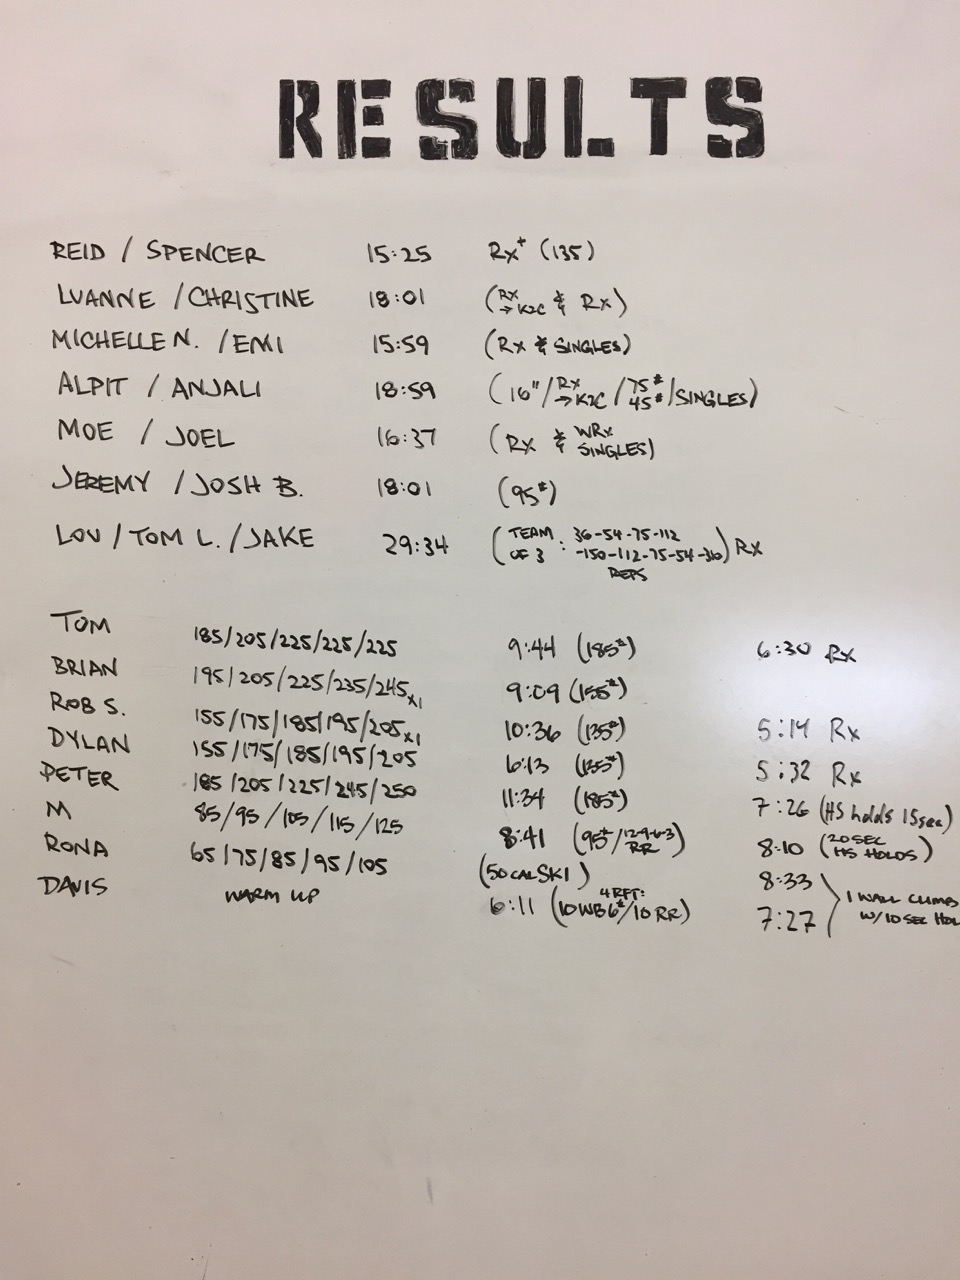 RESULTS
REID / SPENCER 15:25 Rx+ (135)
LUANNE / CHRISTINE 18:01 (Rx → K2C & Rx)
MICHELLE N. / EMI 15:59 (Rx & SINGLES)
ALPIT / ANJALI 18:59 (16"/Rx → K2C / 75# 45# / SINGLES)
MOE / JOEL 16:37 (Rx & WRx SINGLES)
JEREMY / JOSH B. 18:01 (95#)
LOU / TOM L. / JAKE 29:34 (TEAM OF 3 : 36-54-75-112 -150-112-75-54-36) Rx
REPS
TOM 185/205/225/225/225 9:44 (185#) 6:30 Rx
BRIAN 195/205/225/235/245x1 9:09 (155#)
ROB S. 155/175/185/195/205x1 10:36 (135#) 5:14 Rx
DYLAN 155/175/185/195/205 6:13 (135#) 5:32 Rx
PETER 185/205/225/245/250 11:34 (185#) 7:26 (HS holds 15sec)
M 85/95/105/115/125 8:41 (95#/12-9-6-3 RR) 8:10 (20 SEC HS HOLDS)
RONA 65/75/85/95/105 (50 CAL SKI) 8:33
DAVIS WARM UP 6:11 (4 RFT: 10 WB 6#/10 RR) 7:27
1 WALL CLIMB
W/10 SEC HOL